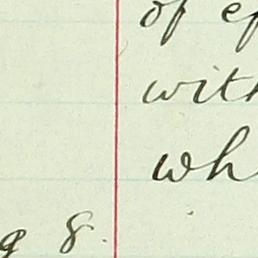 of
with
wh
g 8.